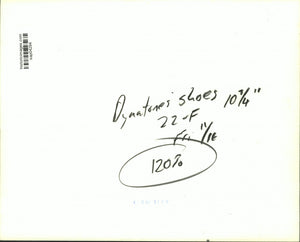 Dynatones' shoes 10 3/4"
22-F
Fri 11/18
120%